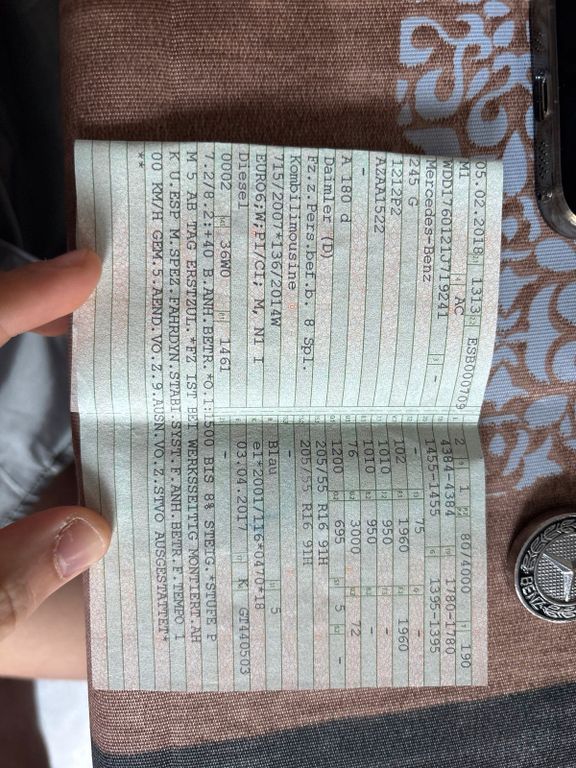 05.02.2018 1313 ESB000709
M1 AC
WDD1760121J719241 -
Mercedes-Benz
245 G
1212P2
AZAA1522
-
A 180 d
Daimler (D)
Fz.z.Pers.bef.b. 8 Spl.
Kombilimousine
715/2007*136/2014W
EURO6,W;PI/CI; M, N1 I
Diesel
0002 36W0 1461
7.2/8.2:+40 B.ANH.BETR.*O.1:1500 BIS 8% STEIG.*STUFE P
M 5 AB TAG ERSTZUL.*FZ IST BEI WERKSSEITIG MONTIERT.AH
K U.ESP M.SPEZ.FAHRDYN.STABI.SYST.F.ANH.BETR.F.TEMPO 1
00 KM/H GEM.5.AEND.VO.Z.9.AUSN.VO.Z.STVO AUSGESTATTET*
**
2 1 80/4000 190
4384-4384 1780-1780
1455-1455 1395-1395
- 75 -
102 1960 1960
1010 950 -
1010 950 -
76 3000 72
1200 695 5 -
205/55 R16 91H
205/55 R16 91H
-
Blau 5
e1*2001/116*0470*18
03.04.2017 K GT440503
-
BENZ